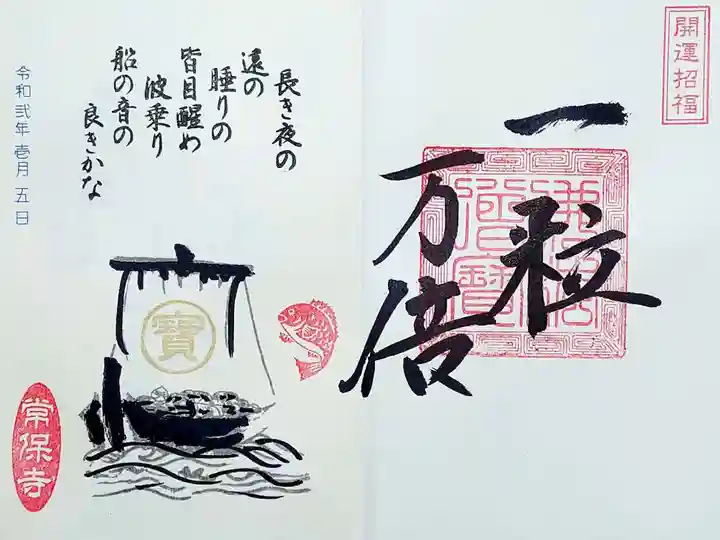 開運招福
一粒
万倍
佛法僧寶
長き夜の
遠の
睡りの
皆目醒め
波乗り
船の音の
良きかな
令和弐年 壱月 五日
寶
常保寺